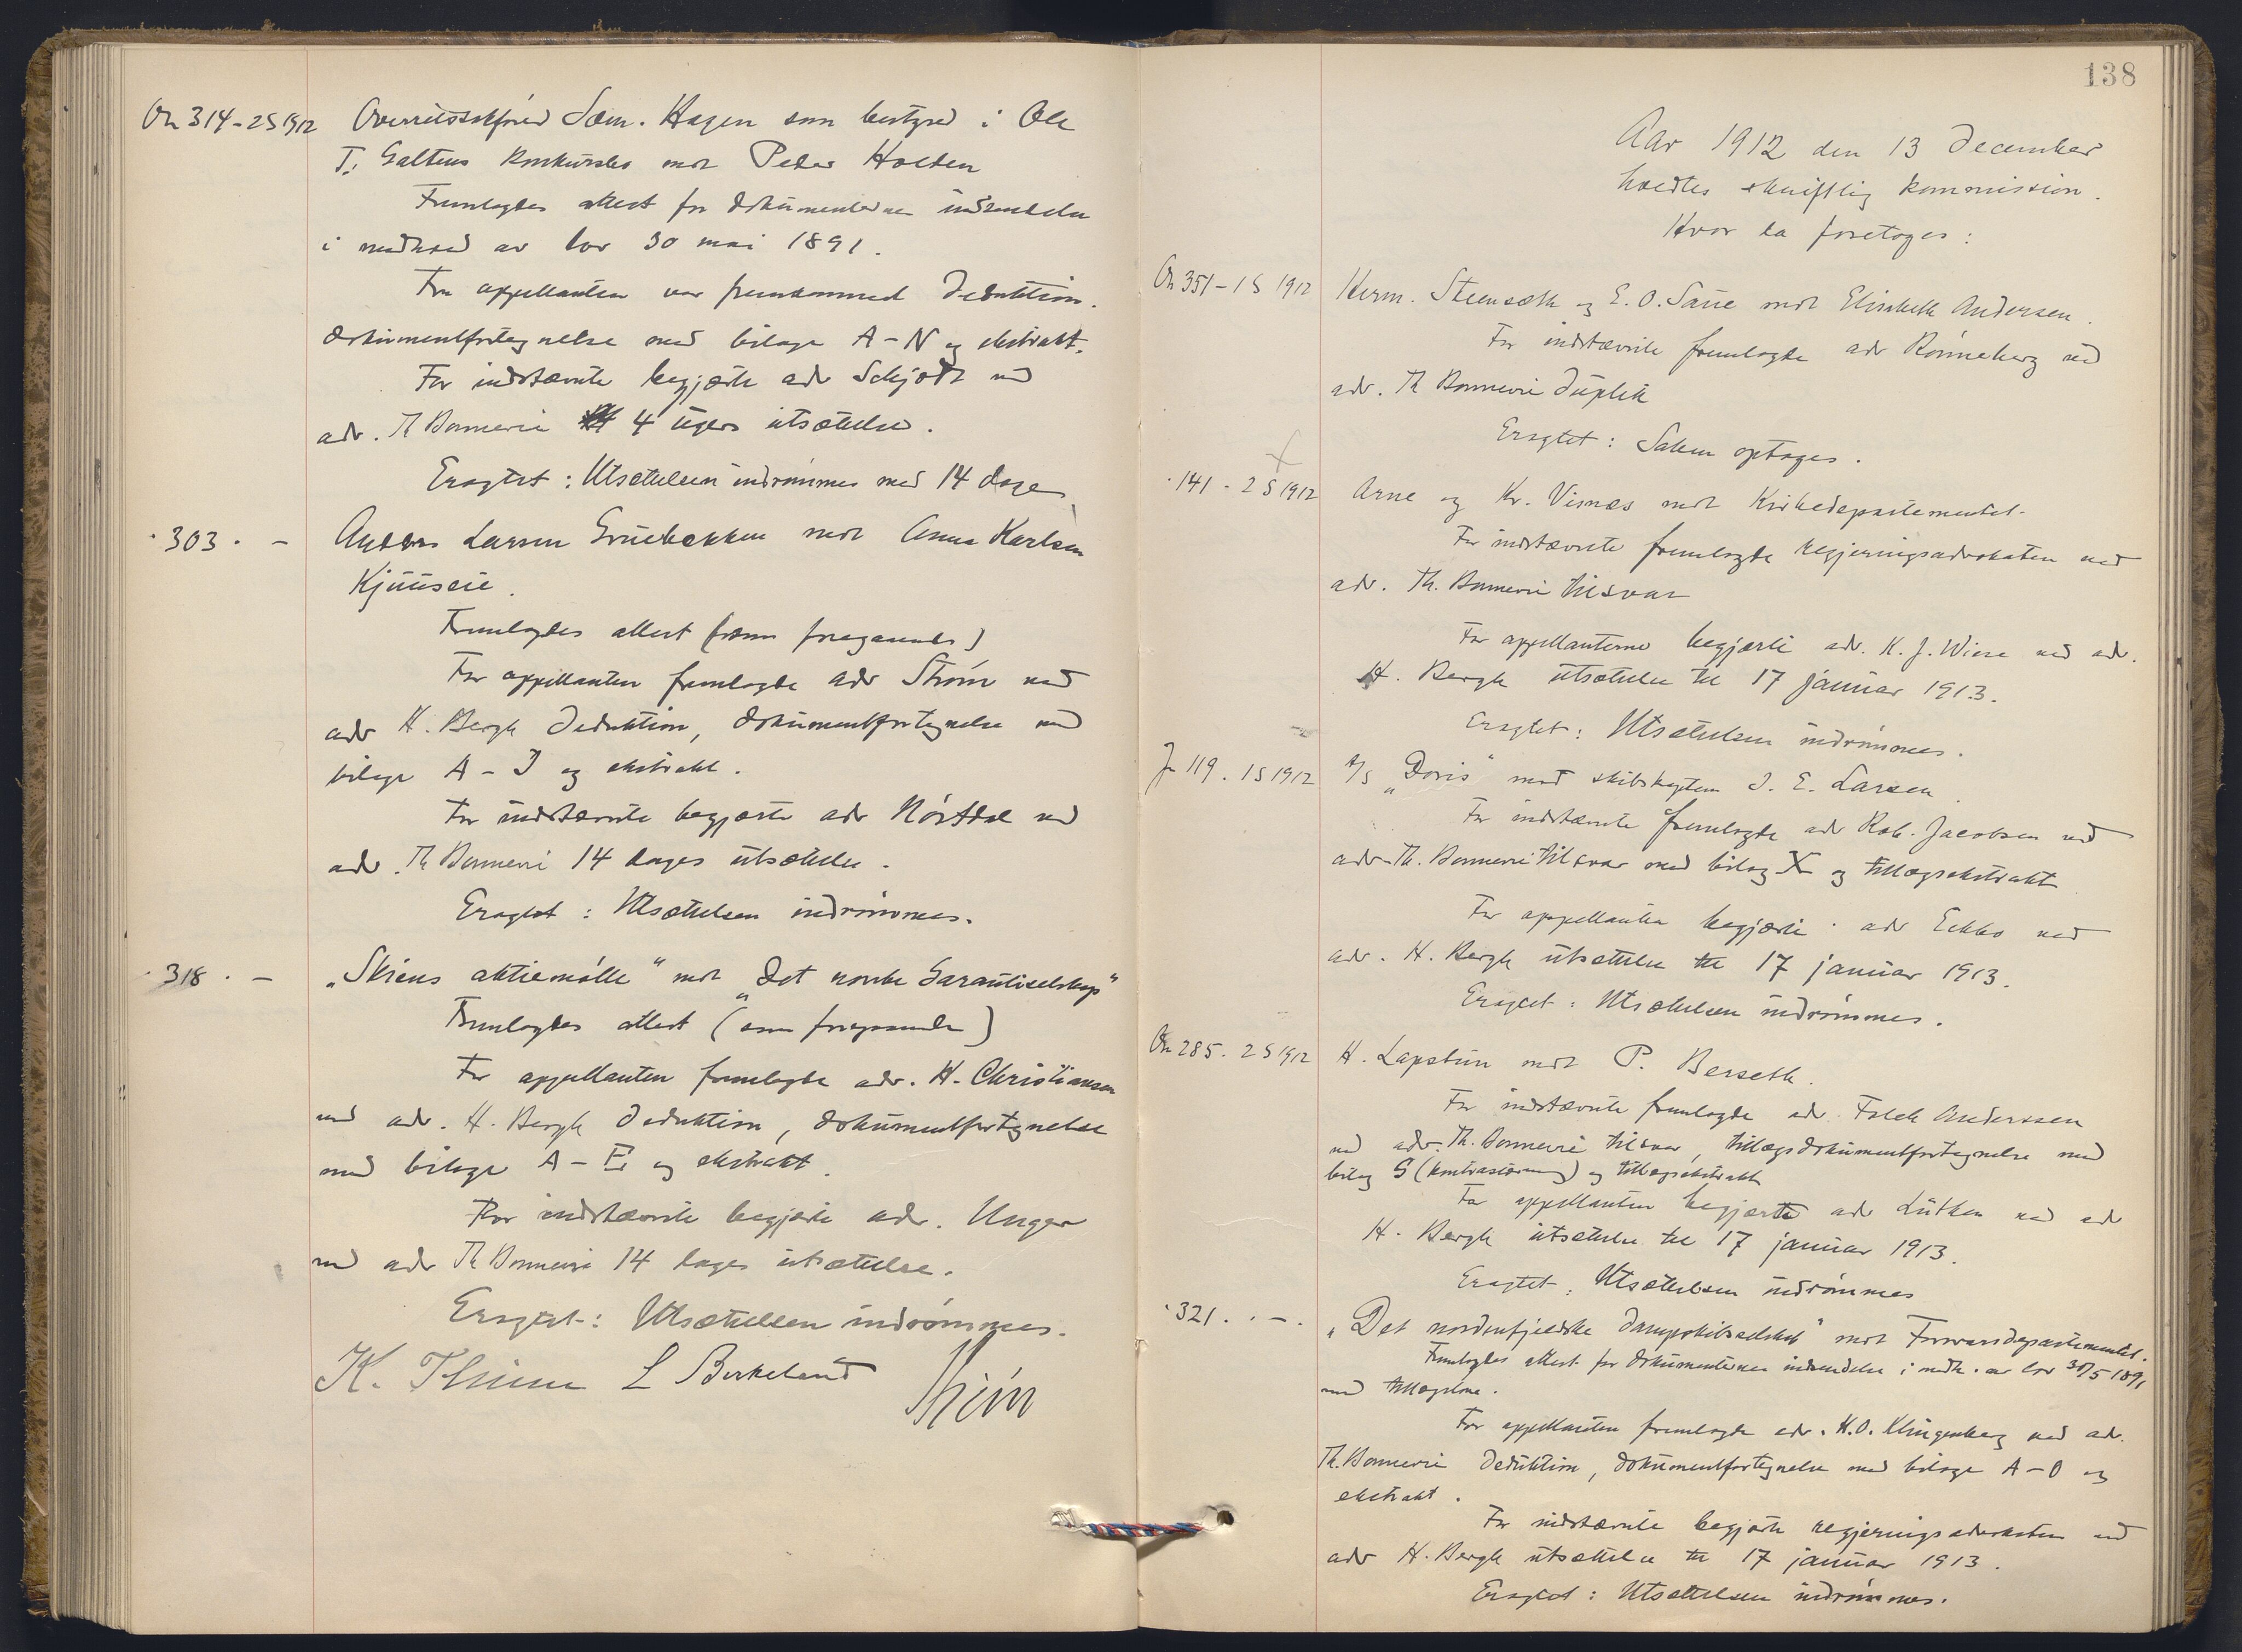 On 314 - 2 S 1912 Overretssakfører Sam. Hagen som bestyrer i Ole
T. Galtens konkursbo mot Peder Holten
Fremlagdes attest for dokumenternes indsendelse
i medhold av lov 30 mai 1891.
For appellanten var fremkommet deduktion,
dokumentfortegnelse med bilage A - N og ekstrakt.
For indstævnte begjærte adv Schjødt ved
adv. Th Bonnevie 4 ugers utsættelse.
Eragtet: Utsættelsen indrømmes med 14 dage
" 303 " - Anders Larsen Gruebakken mot Anna Karlsen
Kjuuseie.
Fremlagdes attest (som foregaaende)
For appellanten fremlagde adv Strøm ved
adv H. Bergh deduktion, dokumentfortegnelse med
bilage A - J og ekstrakt.
For indstævnte begjærte adv Hørtdal ved
adv. Th Bonnevie 14 dages utsættelse.
Eragtet: Utsættelsen indrømmes.
" 318 " - "Skiens aktiemølle" mot "Det norske Garantiselskap"
Fremlagdes attest (som foregaaende)
For appellanten fremlagde adv. H. Christiansen
ved adv. H. Bergh deduktion, dokumentfortegnelse
med bilage A - E og ekstrakt.
For indstævnte begjærte adv. Unger
ved adv Th Bonnevie 14 dages utsættelse.
Eragtet: Utsættelsen indrømmes.
K. Thinn L Birkeland
138
Aar 1912 den 13 december
holdtes skriftlig kommission.
Hvor da foretoges:
On 351 - 1 S 1912 Herm. Steensæth og E. O. Saue mot Elisabeth Andersen.
For indstævnte fremlagde adv Rønneberg ved
adv. Th Bonnevie duplik
Eragtet: Saken optages.
" 141 - 2 S 1912 Arne og Kr. Visnæs mot Kirkedepartementet.
For indstævnte fremlagde regjeringsadvokaten ved
adv. Th. Bonnevie tilsvar
For appellanterne begjærte adv. K. J. Wiese ved adv.
H. Bergh utsættelse til 17 januar 1913.
Eragtet: Utsættelsen indrømmes.
Ja 119. 1 S 1912 A/S "Doris" mot skibskaptein J. E. Larsen.
For indstævnte fremlagde adv Rob. Jacobsen ved
adv. Th. Bonnevie tilsvar med bilag X og tillægsekstrakt
For appellanten begjærte adv Eckbo ved
adv. H. Bergh utsættelse til 17 januar 1913.
Eragtet: Utsættelsen indrømmes.
On 285. 2 S 1912 H. Lapstun mot P. Berseth.
For indstævnte fremlagde adv. Falck Anderssen
ved adv. Th. Bonnevie tilsvar, tillægsdokumentfortegnelse med
bilag S (kontrastævning) og tillægsekstrakt
For appellanten begjærte adv Lütken ved adv
H. Bergh utsættelse til 17 januar 1913.
Eragtet: Utsættelsen indrømmes
" 321. " - "Det nordenfjeldske dampskibsselskab" mot Forsvarsdepartementet.
Fremlagdes attest for dokumenternes indsendelse i medh. av lov 30/5 1891
med tillægslove.
For appellanten fremlagde adv. K.O. Klingenberg ved adv.
Th. Bonnevie deduktion, dokumentfortegnelse med bilage A - O og
ekstrakt.
For indstævnte begjærte regjeringsadvokaten ved
adv H. Bergh utsættelse til 17 januar 1913.
Eragtet: Utsættelsen indrømmes.